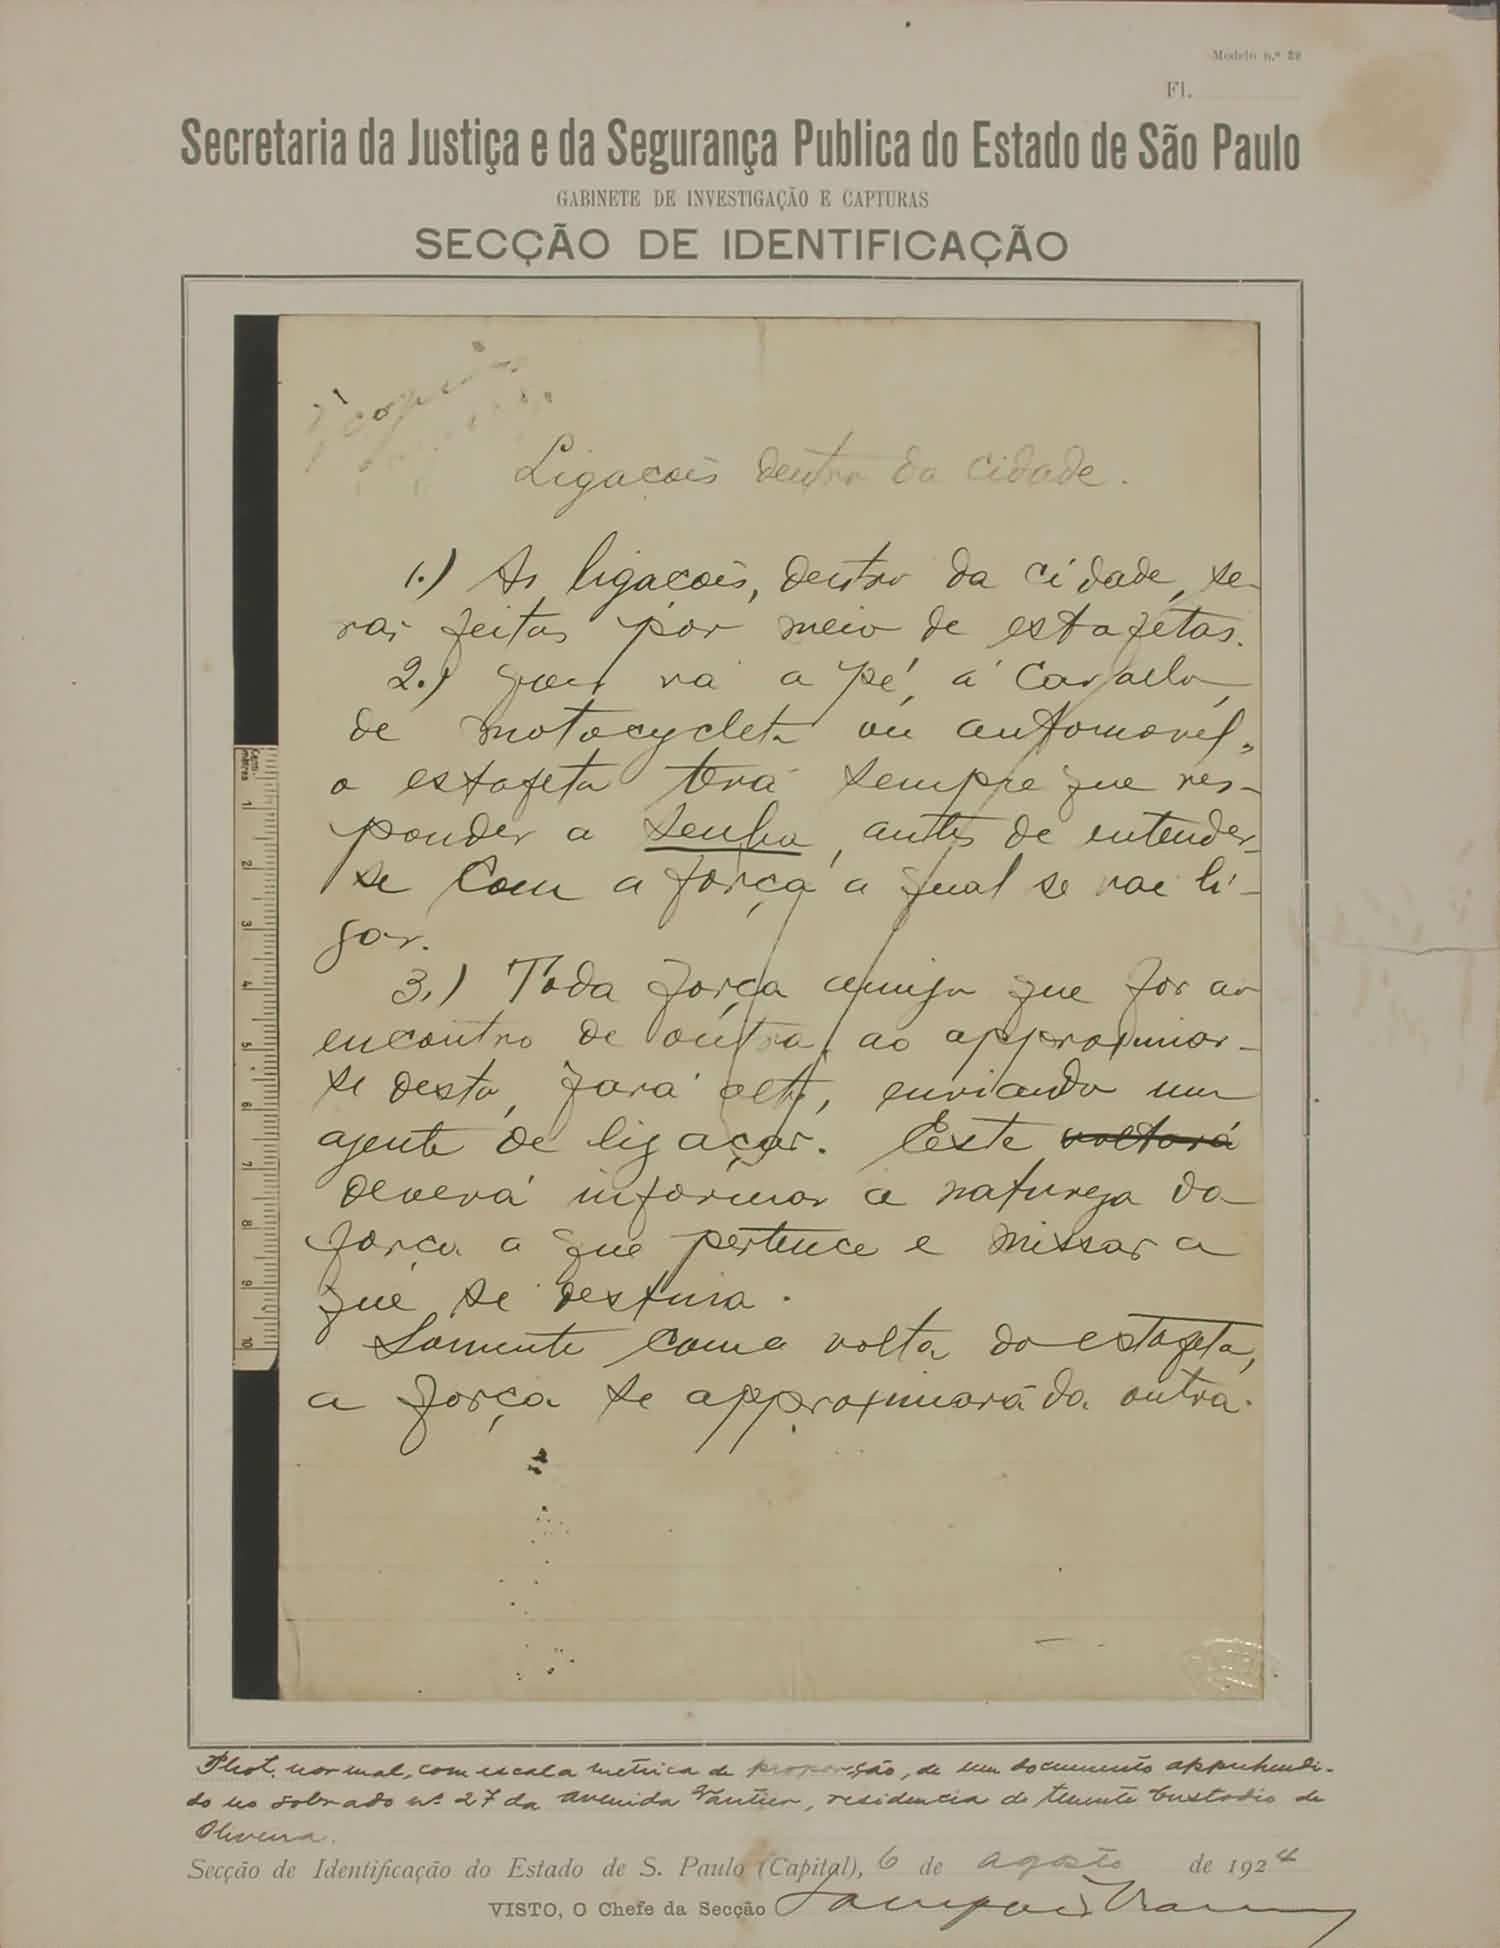 Modelo n.º 39
Fl.
Secretaria da Justiça e da Segurança Publica do Estado de São Paulo
GABINETE DE INVESTIGAÇÃO E CAPTURAS
SECÇÃO DE IDENTIFICAÇÃO
copias
Ligacois dentro da cidade.
1.) As ligacois, dentro da cidade, se-
rai feitas por meio de estafetas.
2.) quer vá a pé, á cavallo,
de motocycleta ou automovel,
o estafeta terá sempre que res-
ponder a senha, antes de entender-
se com a força a qual se vae li-
gar.
3.) Toda força amiga que for ao
encontro de outra, ao approximar-
se desta, fará alto, enviando um
agente de ligaçar. Este voltará
deverá informar a natureza da
força a que pertence e missar a
que se destina.
Sómente com a volta do estafeta,
a força se approximará da outra.
Centi-
metros
1
2
3
4
5
6
7
8
9
10
Phot. normal, com escala metrica de proporção, de um documento apprehendi-
do no sobrado nº 27 da Avenida Vautier, residencia do tenente Custodio de
Oliveira.
Secção de Identificação do Estado de S. Paulo (Capital), 6 de agosto de 1924
VISTO, O Chefe da Secção Sampaio Vianna